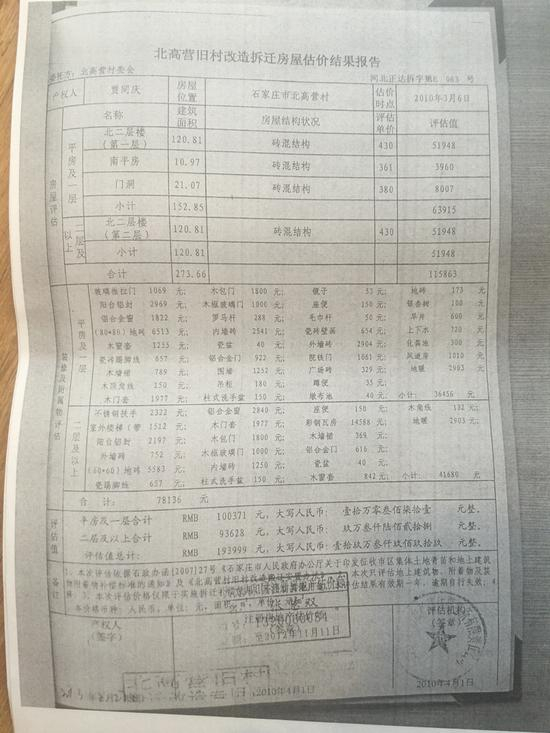 北高营旧村改造拆迁房屋估价结果报告
委托方：北高营村委会 河北正达拆字第E 063 号
产权人 贾同庆 房屋位置 石家庄市北高营村 估价时点 2010年3月6日
名称 建筑面积 房屋结构状况 评估单价 评估值
房屋评估
平房及一层
北二层楼（第一层） 120.81 砖混结构 430 51948
南平房 10.97 砖混结构 361 3960
门洞 21.07 砖混结构 380 8007
小计 152.85 63915
二层及以上
北二层楼（第二层） 120.81 砖混结构 430 51948
小计 120.81 51948
合计 273.66 115863
装修及附属物评估
平房及一层
玻璃推拉门 1069 元； 木包门 1800 元； 镜子 53 元； 地砖 173 元；
阳台铝封 2969 元； 木框玻璃门 1000 元； 座便 150 元； 银杏树 100 元；
铝合金窗 1822 元； 罗马杆 288 元； 毛巾杆 50 元； 旱井 600 元；
(80*80)地砖 6513 元； 内墙砖 2541 元； 瓷砖壁画 654 元； 上下水 720 元；
木窗套 1255 元； 瓷盆 40 元； 外墙砖 2904 元； 化粪池 300 元；
瓷砖踢脚线 657 元； 铝合金门 922 元； 院铁门 1061 元； 风道房 1010 元；
木墙裙 789 元； 围墙 1252 元； 广场砖 329 元； 地暖 2903 元；
木顶角线 150 元； 吊柜 180 元； 蹲便 35 元；
木门套 1977 元； 柱式洗手盆 150 元； 墩布池 40 元； 小计：36456 元；
二层及以上
不锈钢扶手 2322 元； 铝合金窗 2840 元； 座便 150 元； 木角线 132 元；
室外楼梯（带 1512 元； 木门套 1977 元； 彩钢瓦房 14588 元； 地暖 2903 元；
阳台铝封 2197 元； 木包门 1800 元； 木墙裙 369 元；
外墙砖 752 元； 木框玻璃门 1000 元； 铝合金门 616 元；
(60*60)地砖 5583 元； 内墙砖 1250 元； 瓷盆 40 元；
瓷踢脚线 657 元； 柱式洗手盆 150 元； 木窗套 842 元； 小计：41680 元；
合 计： 78136 元
评估值
平房及一层合计 RMB 100371 元，大写人民币：壹拾万零叁佰柒拾壹 元整。
二层及以上合计 RMB 93628 元，大写人民币：玖万叁仟陆佰贰拾捌 元整。
评估值总计： RMB 193999 元，大写人民币：壹拾玖万叁仟玖佰玖拾玖 元整。
备注
1、本次评估依据石政办函[2007]27号《石家庄市人民政府办公厅关于印发征收市区集体土地青苗和地上建筑
产权人（签字）
至：2012年11月11日
2010年4月1日
评估机构（签章）
2010年4月1日